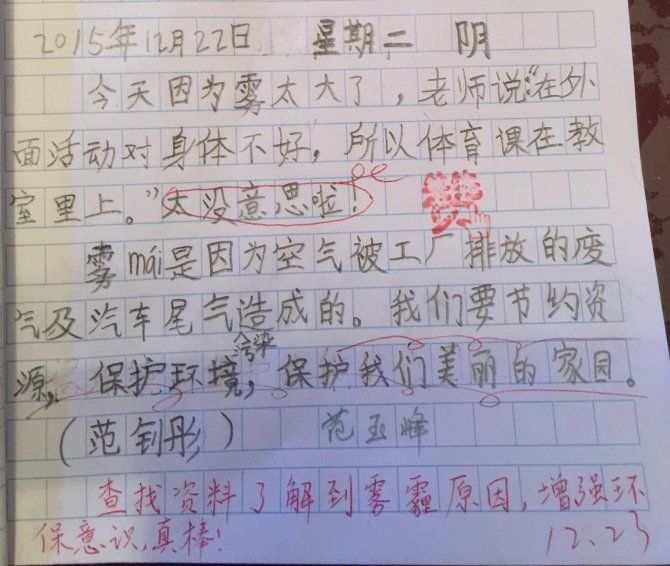 2015年12月22日 星期二 阴
今天因为雾太大了，老师说:“在外
面活动对身体不好，所以体育课在教
室里上。”太没意思啦！
雾mái是因为空气被工厂排放的废
气及汽车尾气造成的。我们要节约资
污染
源，保护环境，保护我们美丽的家园。
（范钊彤） 范玉峰
查找资料了解到雾霾原因，增强环
保意识，真棒！ 12.23